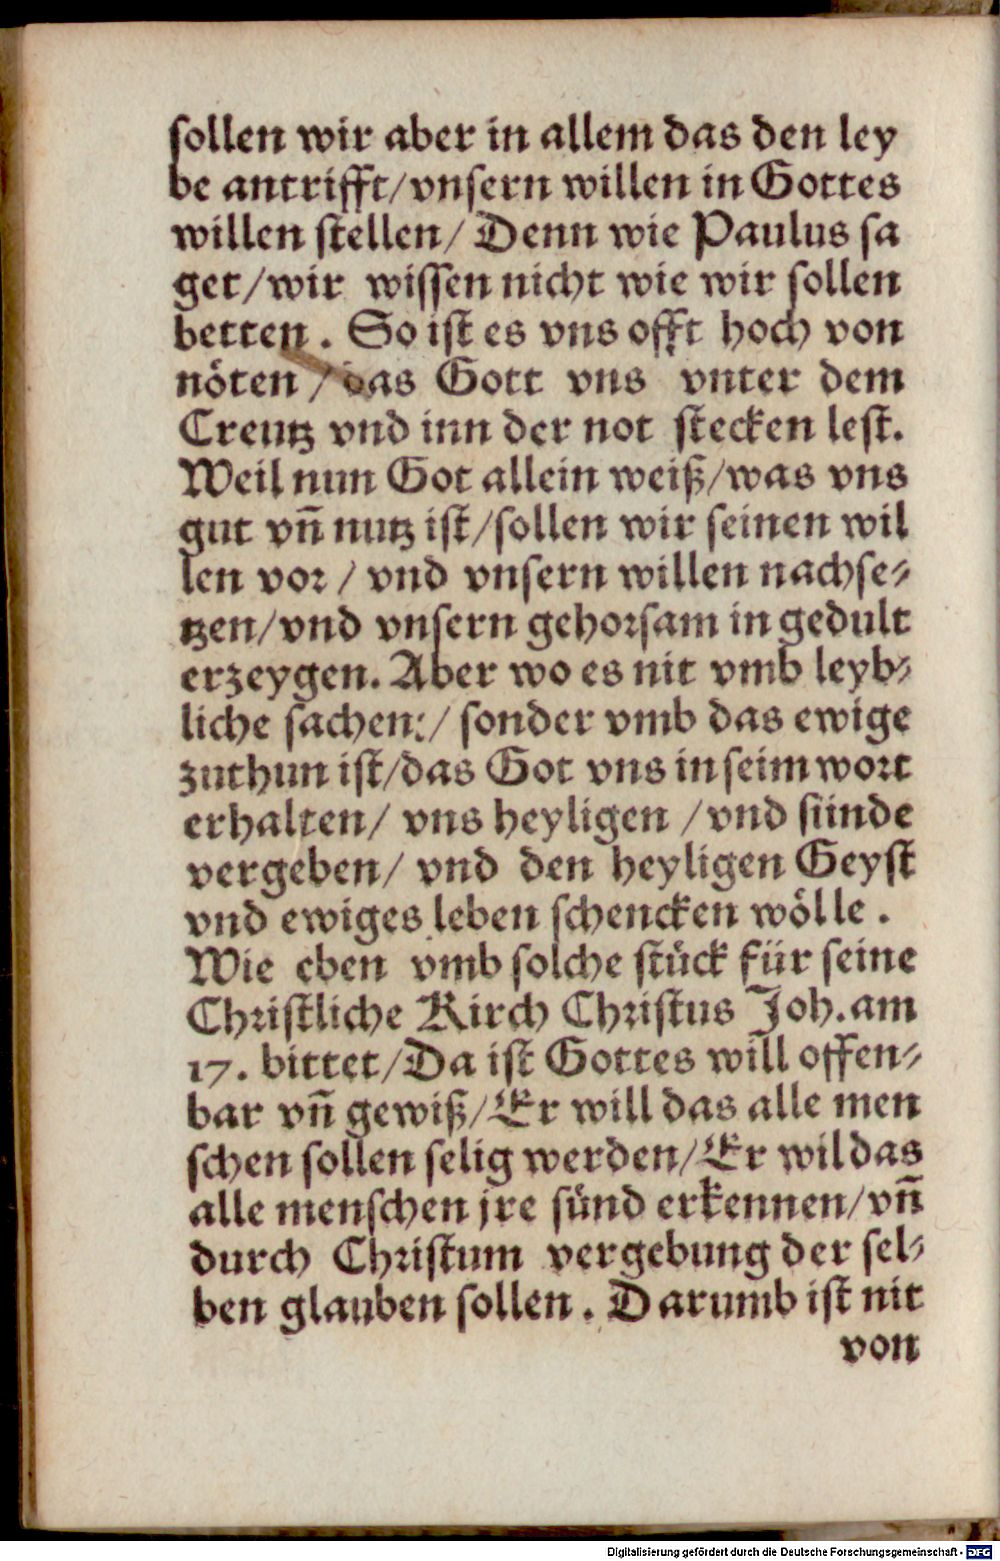 sollen wir aber in allem das den ley
be antrifft/vnsern willen in Gottes
willen stellen/ Denn wie Paulus sa
get/wir wissen nicht wie wir sollen
betten. So ist es vns offt hoch von
nöten / das Gott vns vnter dem
Creutz vnd inn der not stecken lest.
Weil nun Got allein weiß/was vns
gut vñ nutz ist/sollen wir seinen wil
len vor / vnd vnsern willen nachse⸗
tzen/vnd vnsern gehorsam in gedult
erzeygen. Aber wo es nit vmb leyb⸗
liche sachen:/ sonder vmb das ewige
zuthun ist/das Got vns in seim wort
erhalten/ vns heyligen /vnd sünde
vergeben/ vnd den heyligen Geyst
vnd ewiges leben schencken wölle.
Wie eben vmb solche stück für seine
Christliche Kirch Christus Joh. am
17. bittet/Da ist Gottes will offen⸗
bar vñ gewiß/Er will das alle men
schen sollen selig werden/Er wil das
alle menschen jre sünd erkennen/vñ
durch Christum vergebung der sel⸗
ben glauben sollen. Darumb ist nit
von
Digitalisierung gefördert durch die Deutsche Forschungsgemeinschaft - DFG